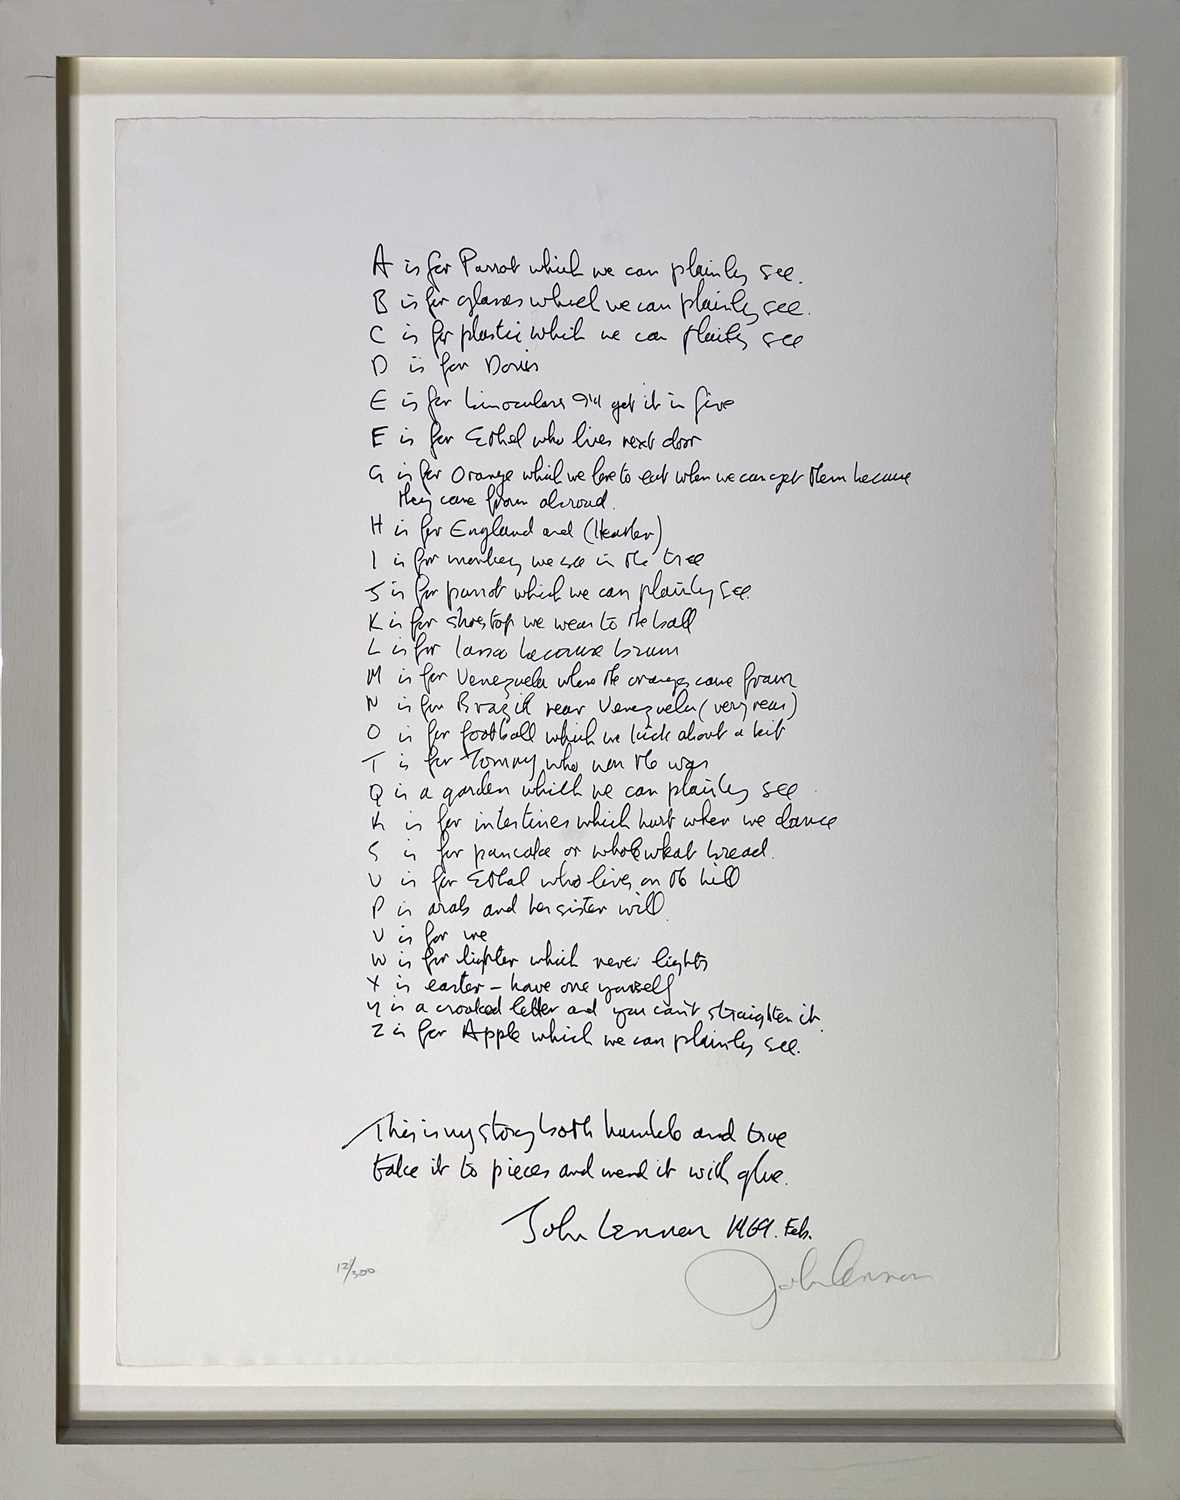 A is for Parrot which we can plainly see.
B is for glasses which we can plainly see.
C is for plastic which we can plainly see
D is for Doris
E is for binoculars I'll get it in five
E is for Ethel who lives next door
G is for Orange which we love to eat when we can get them because
they come from abroad.
H is for England and (Heather)
I is for monkey we see in the tree
J is for parrot which we can plainly see.
K is for shoestop we wear to the ball
L is for lasso because brum
M is for Venezuela where the oranges come from
N is for Brazil near Venezuela (very near)
O is for football which we kick about a bit
T is for Tommy who won the war
Q is a garden which we can plainly see
K is for intestines which hurt when we dance
S is for pancake or wholewheat bread.
U is for Ethel who lives on the hill
P is arab and her sister will.
V is for we
W is for lighter which never lights
X is easter – have one yourself
Y is a crooked letter and you can't straighten it.
Z is for Apple which we can plainly see.
This is my story both humble and true
take it to pieces and mend it with glue.
John Lennon 1969. Feb.
12/300
John Lennon